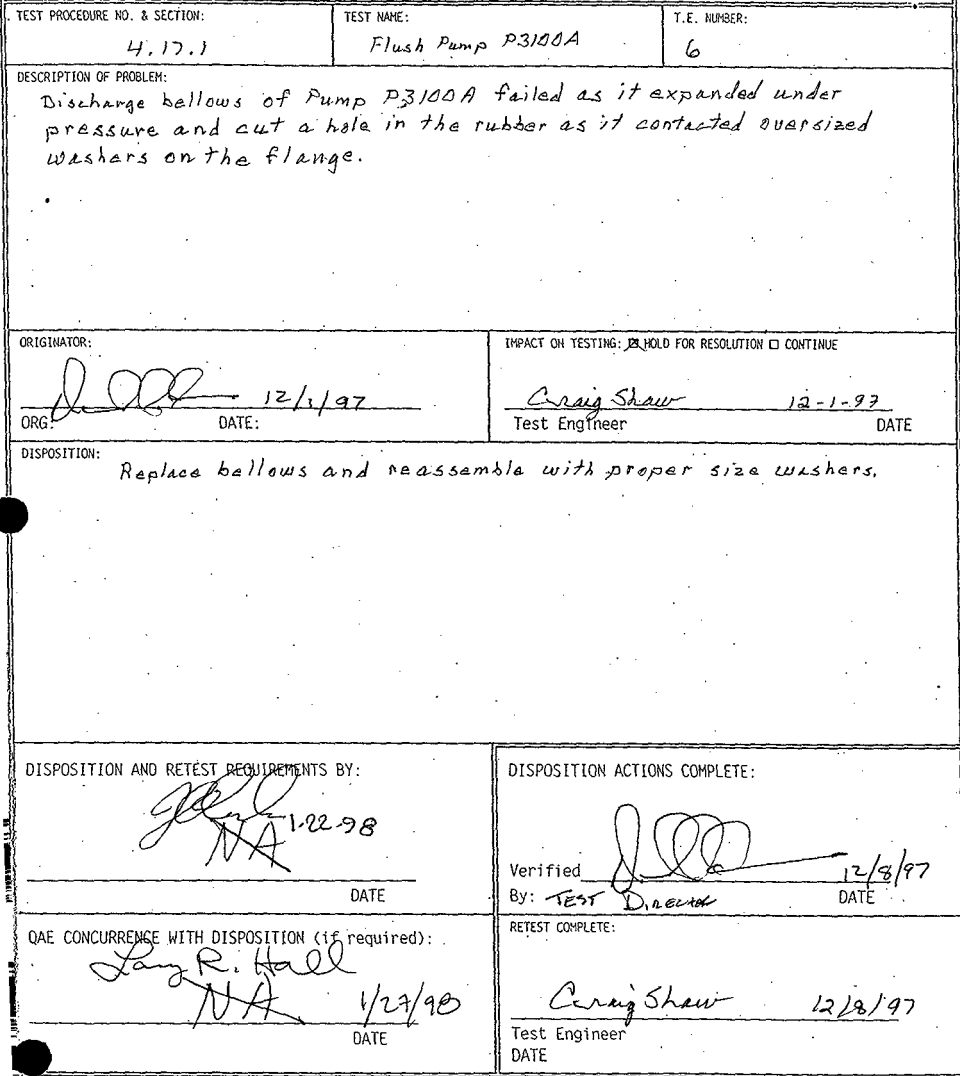 TEST PROCEDURE NO. & SECTION:
4.17.1
TEST NAME:
Flush Pump P3100A
T.E. NUMBER:
6
DESCRIPTION OF PROBLEM:
Discharge bellows of Pump P3100A failed as it expanded under
pressure and cut a hole in the rubber as it contacted oversized
washers on the flange.
ORIGINATOR:
12/1/97
ORG: DATE:
IMPACT ON TESTING: ☒ HOLD FOR RESOLUTION ☐ CONTINUE
Craig Shaw 12-1-97
Test Engineer DATE
DISPOSITION:
Replace bellows and reassemble with proper size washers.
DISPOSITION AND RETEST REQUIREMENTS BY:
1-22-98
NA
DATE
DISPOSITION ACTIONS COMPLETE:
Verified 12/8/97
By: TEST DIRECTOR DATE
QAE CONCURRENCE WITH DISPOSITION (if required):
Larry R. Hall
NA 1/27/98
DATE
RETEST COMPLETE:
Craig Shaw 12/8/97
Test Engineer
DATE